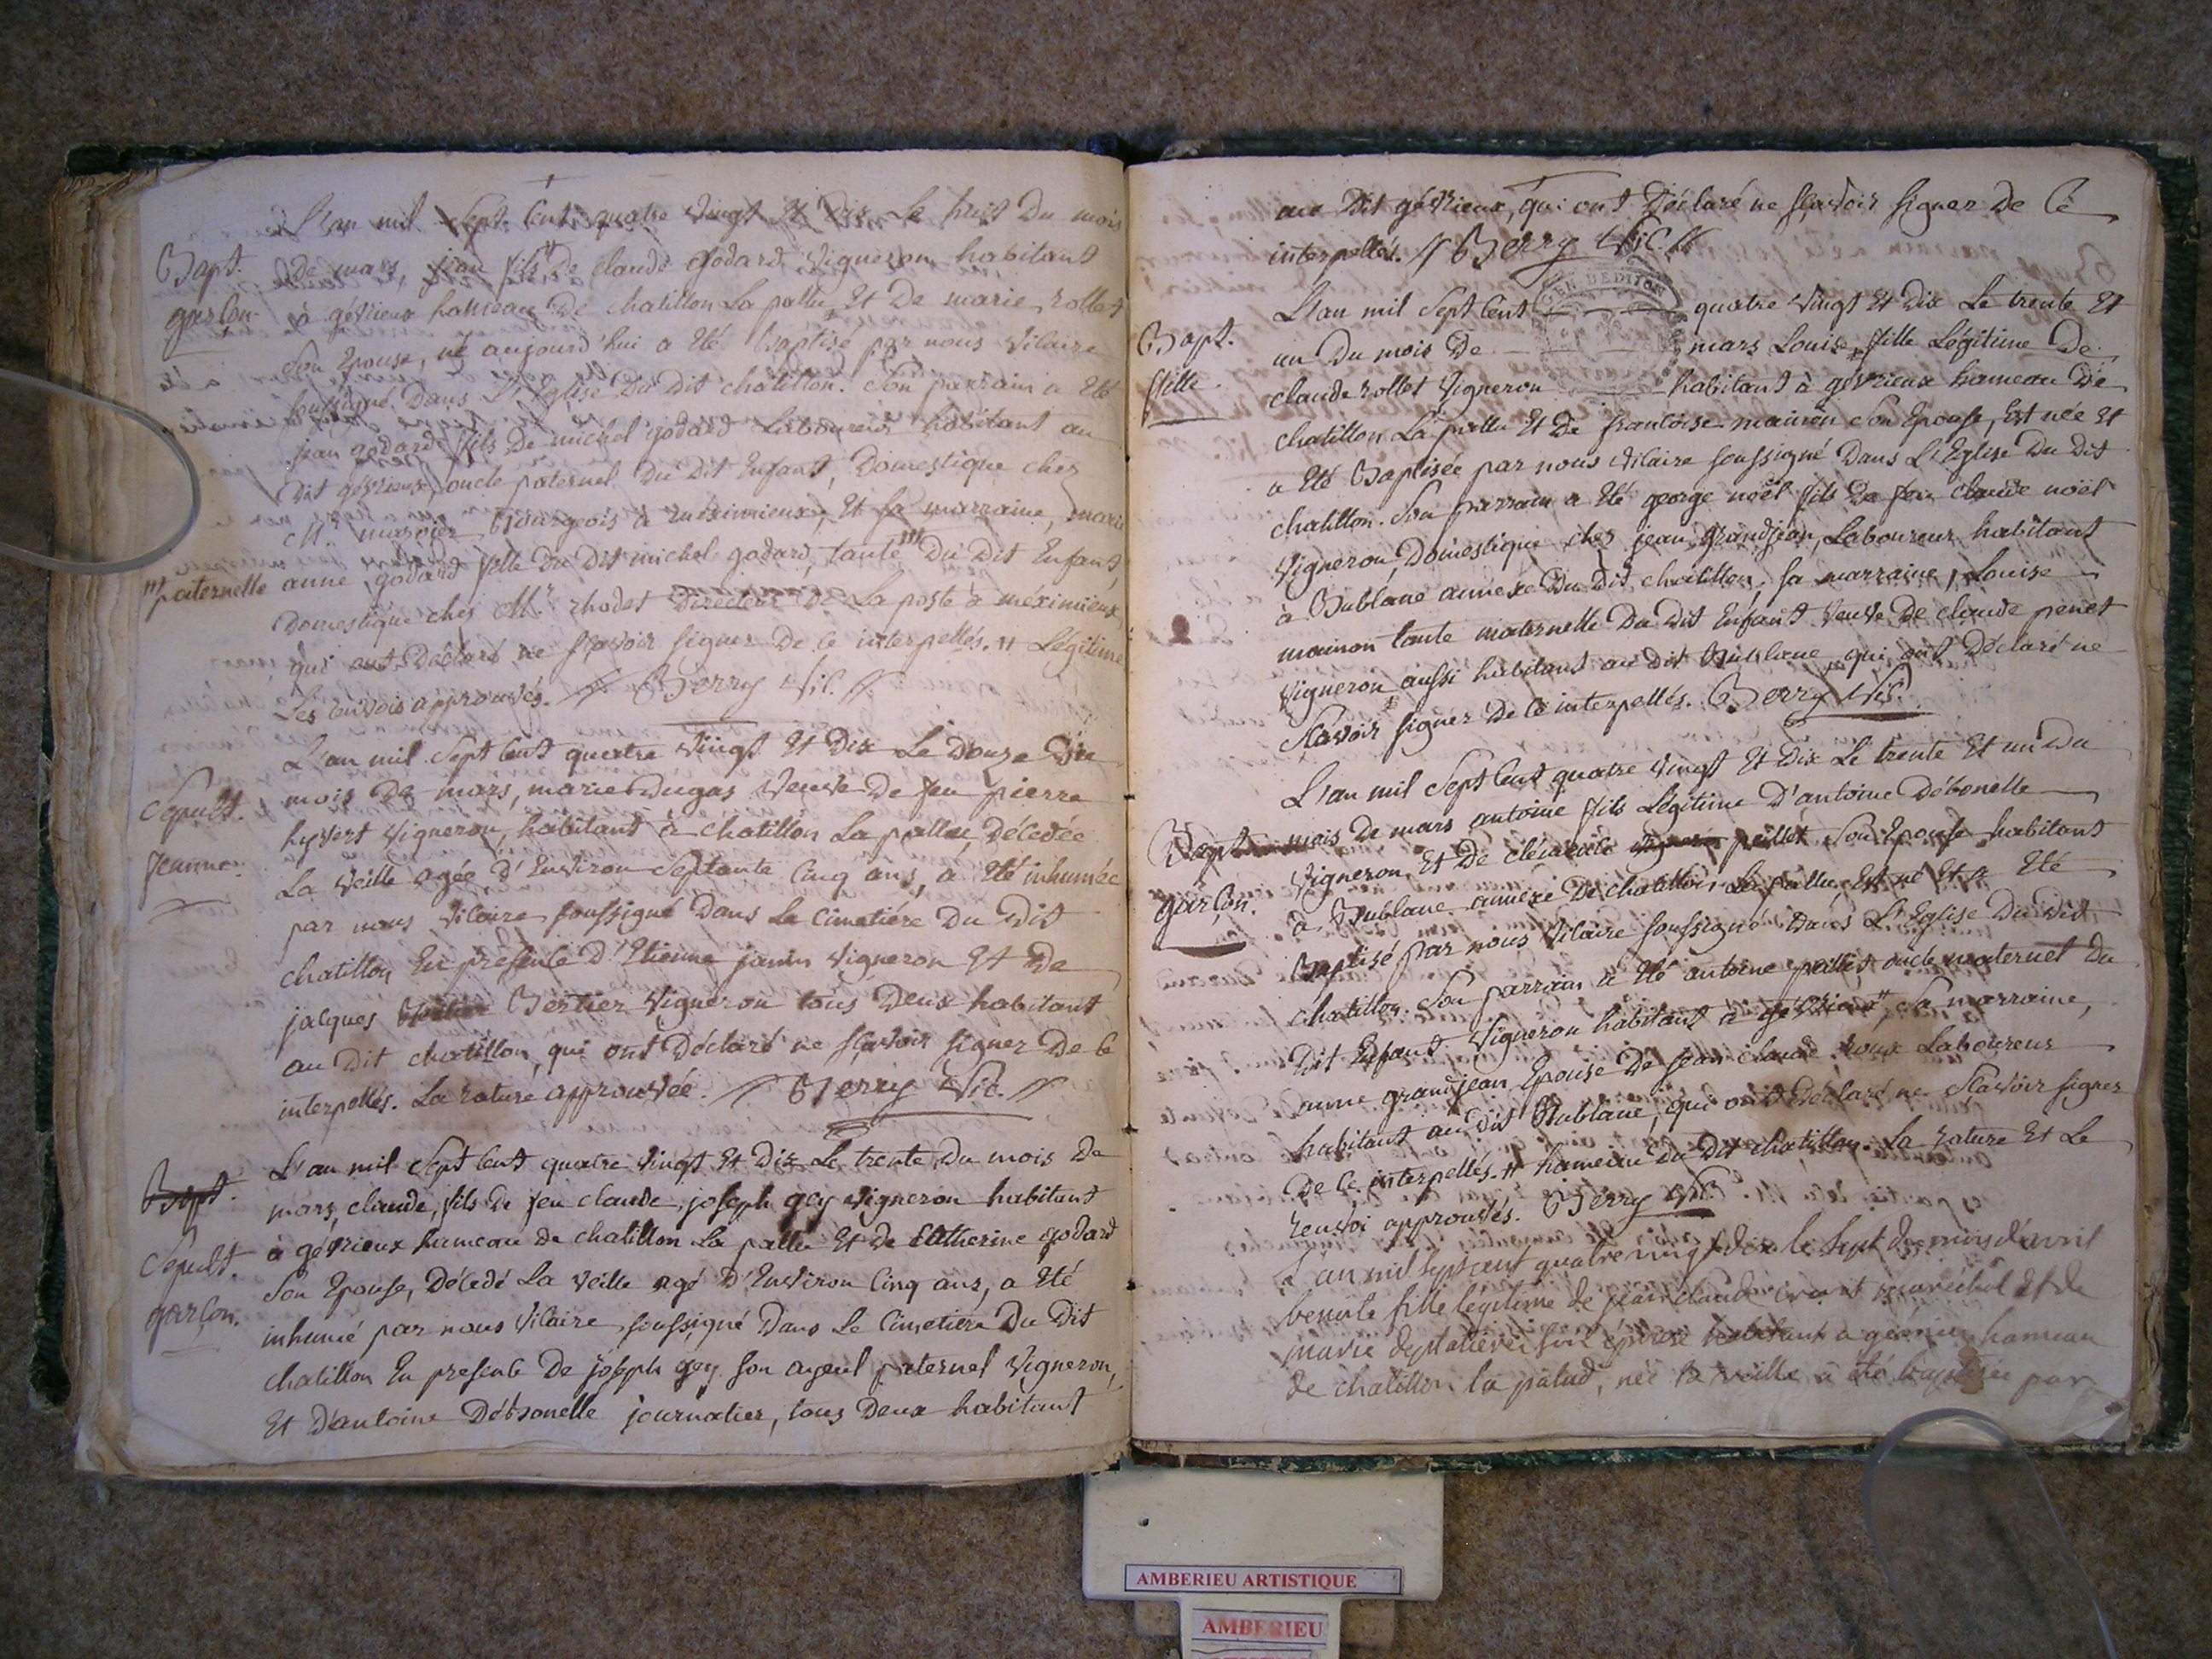 L'an mil Sept Cent quatre Vingt Et Dix Le huit Du mois
Bapt.
garçon.
De mars, jean fils " De claude godard Vigneron habitant
à gévrieux hameau De chatillon La pallu Et De marie rollet
Son Epouse, né aujourd'hui a Eté Baptisé par nous Vicaire
soussigné Dans L'Eglise Du Dit chatillon. Son parrain a Eté
jean godard fils De michel godard Laboureur habitant au
Dit gévrieux, oncle paternel Du Dit Enfant, Domestique ches
Mr. Bourgeois à méximieux, Et Sa marraine, marie
"' paternelle
anne godard fille Du Dit michel godard, tante "' Du Dit Enfant,
Domestique ches Mr. rhodet Directeur De La poste à méximieux
qui ont Déclaré ne sçavoir signer De Ce interpellés. " Légitime
Les Envois approuvés. Berry Vic.
L'an mil Sept Cent quatre Vingt Et Dix Le Douze Du
Sepult.
femme.
mois De mars, marie Dugas Veuve De feu pierre
hyvert Vigneron, habitant à chatillon La pallue, Décédée
La Veille agée D'Environ Septante Cinq ans, a Eté inhumée
par nous Vicaire soussigné Dans Le Cimetiére Du Dit
chatillon En présence D'Etienne janin Vigneron Et De
jacques Bertier Vigneron tous Deux habitant
au Dit chatillon, qui ont Déclaré ne sçavoir signer De Ce
interpellés. La rature approuvée. Berry Vic.
L'an mil Sept Cent quatre Vingt Et Dix Le trente Du mois De
Bapt.
Sepult.
garçon.
mars, claude, fils De feu claude joseph gey Vigneron habitant
à gévrieux hameau de chatillon La pallu Et de Catherine godard
Son Epouse, Décédé La Veille agé D'Environ Cinq ans, a Eté
inhumé par nous Vicaire soussigné Dans Le Cimetiére Du Dit
chatillon En présence De joseph gey son ayeul paternel Vigneron,
Et D'antoine Débonelle journalier, tous Deux habitant
au Dit gévrieux, qui ont Déclaré ne sçavoir signer De Ce
interpellés. Berry Vic.
GEN DEDITON
L'an mil Sept Cent quatre Vingt Et Dix Le trente Et
Bapt.
fille
un Du mois De mars Louise, fille Légitime De
claude rollet Vigneron habitant à gévrieux hameau De
chatillon La pallu Et De francoise mainon Son Epouse, Est née Et
a Eté Baptisée par nous Vicaire soussigné Dans L'Eglise Du Dit
chatillon. Son parrain a Eté george noël fils De feu claude noël
Vigneron, Domestique ches jean grandjean, Laboureur habitant
à Bublane annexe Du Dit chatillon, Sa marraine, Louise
mainon tante maternelle Du Dit Enfant Veuve De claude penet
Vigneron aussi habitant au dit Bublane, qui ont Déclaré ne
Sçavoir signer De Ce interpellés. Berry Vic.
L'an mil Sept Cent quatre Vingt Et Dix Le trente Et un Du
Bapt.
garçon.
mois de mars antoine fils Légitime D'antoine Débonelle
Vigneron Et De clémente peillet Son Epouse habitant
à Bublane annexe De chatillon La pallu, Est né Et a Eté
Baptisé par nous Vicaire soussigné Dans L'Eglise Du Dit
chatillon. Son parrain a Eté antoine peillet oncle maternel Du
Dit Enfant Vigneron habitant à gévrieux ", Sa marraine,
anne grandjean Epouse De jean claude roux Laboureur
habitant au Dit Bublane, qui ont Déclaré ne Sçavoir signer
De Ce interpellés. " hameau du Dit chatillon. La rature Et Le
renvoi approuvés. Berry Vic.
L'an mil sept cent quatre vingt dix le sept du mois d'avril
benoite fille légitime de jean claude marechal et de
marie son épouse habitant a gévrieux hameau
de chatillon la palud, née la veille a été baptisée par
AMBERIEU ARTISTIQUE
AMBERIEU